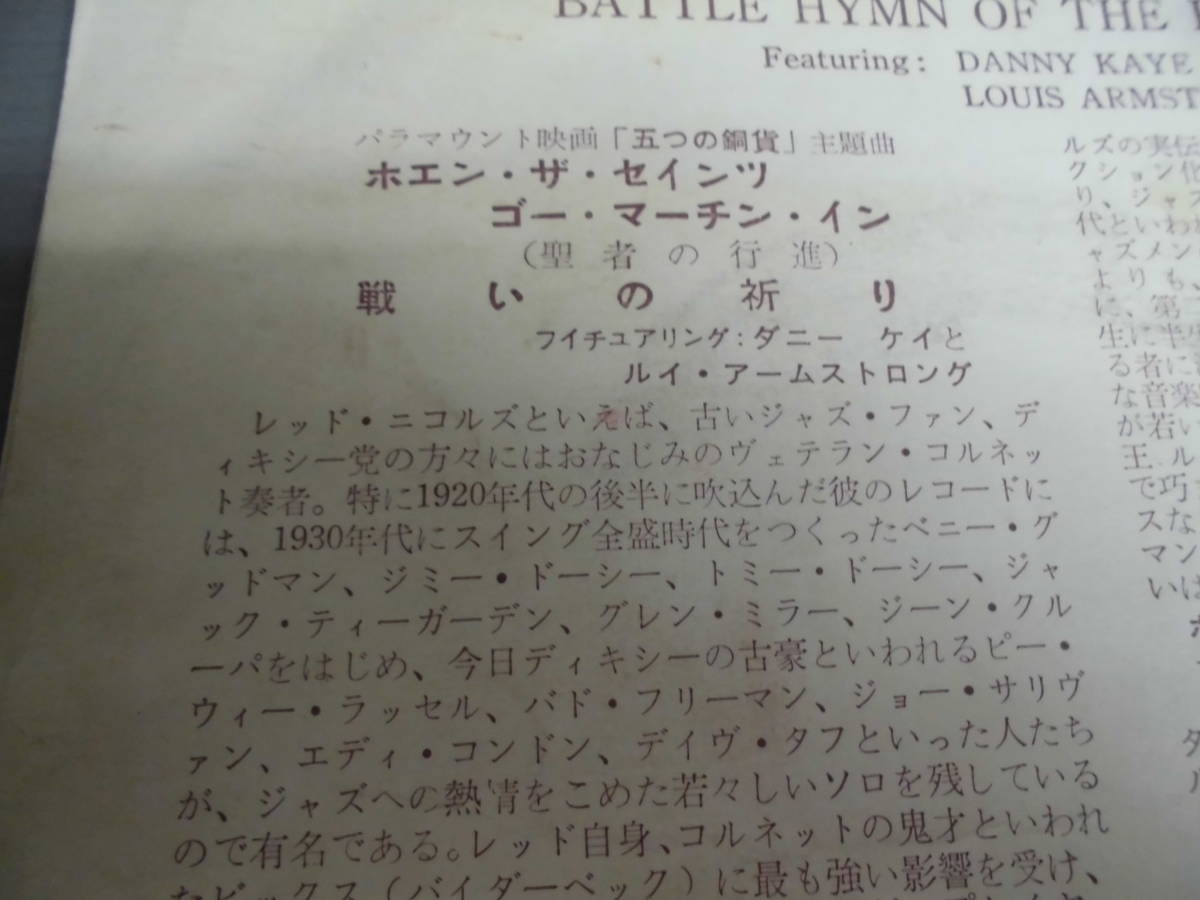 BATTLE HYMN OF THE
Featuring: DANNY KAYE
LOUIS ARMST
パラマウント映画「五つの銅貨」主題曲
ホエン・ザ・セインツ
ゴー・マーチン・イン
(聖者の行進)
戦いの祈り
フイチュアリング:ダニー ケイと
ルイ・アームストロング
レッド・ニコルズといえば、古いジャズ・ファン、デ
ィキシー党の方々にはおなじみのヴェテラン・コルネッ
ト奏者。特に1920年代の後半に吹込んだ彼のレコードに
は、1930年代にスイング全盛時代をつくったベニー・グ
ッドマン、ジミー・ドーシー、トミー・ドーシー、ジャ
ック・ティーガーデン、グレン・ミラー、ジーン・クル
ーパをはじめ、今日ディキシーの古豪といわれるピー・
ウィー・ラッセル、バド・フリーマン、ジョー・サリヴ
ァン、エディ・コンドン、デイヴ・タフといった人たち
が、ジャズへの熱情をこめた若々しいソロを残している
ので有名である。レッド自身、コルネットの鬼才といわれ
たビックス(バイダーベック)に最も強い影響を受け、
ルズの実伝
クション化
り、ジャズ
代といわ
ャズメン
よりも、
に、第二
生に半生
る者に
な音楽
が若い
王、ル
で巧
スな
マン
いは